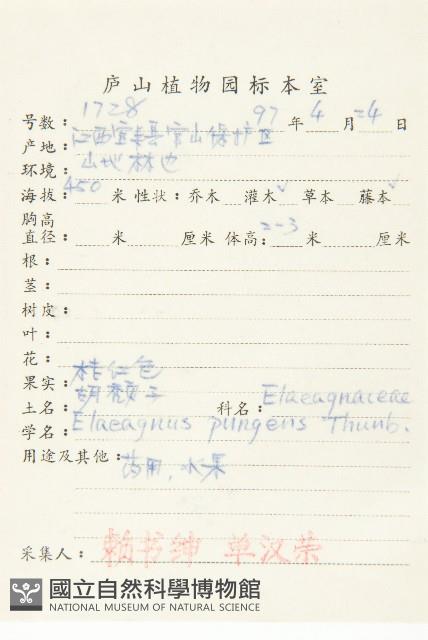 庐山植物园标本室
号数: 1728 97 年 4 月 24 日
产地: 江西宜丰县官山保护区
环境: 山地林边
海拔: 450 米 性状: 乔木 灌木✓ 草本 藤本✓
胸高
直径: 米 厘米 体高: 2-3 米 厘米
根:
茎:
树皮:
叶:
花:
果实: 桔红色
土名: 胡颓子 科名: Elaeagnaceae
学名: Elaeagnus pungens Thunb.
用途及其他: 药用, 水果
采集人: 赖书绅 单汉荣
國立自然科學博物館
NATIONAL MUSEUM OF NATURAL SCIENCE